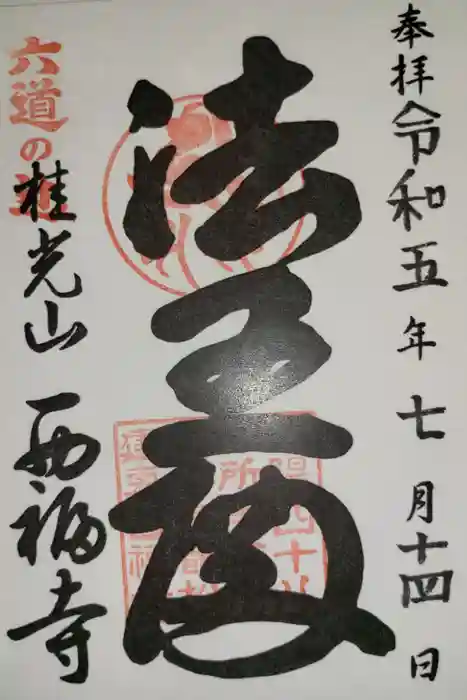 奉拝 令和五年七月十四日
法王殿
六道の辻
桂光山 西福寺